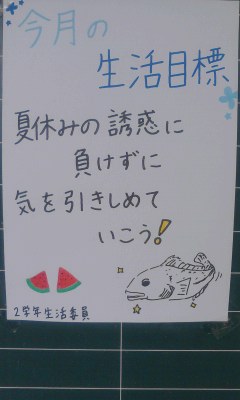 今月の
生活目標
夏休みの誘惑に
負けずに
気を引きしめて
いこう!
2学年生活委員